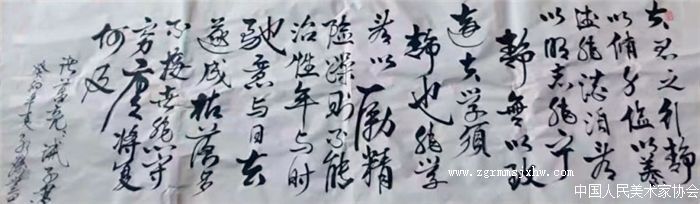 夫君之行静
以修身俭以养
德非淡泊无
以明志非宁
静无以致
远夫学须
静也非学
无以励精
险躁则不能
治性年与时
驰意与日去
遂成枯落多
不接世悲守
穷庐将复
何及
诸葛亮诫子书
癸卯年夏
www.zgrmmsjxhw.com
中国人民美术家协会